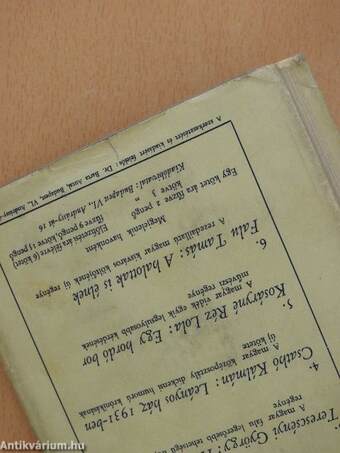 Terescsényi György:
A magyar falu legerősebb tehetségű
regénye
4. Csathó Kálmán: Leányos ház 1931-ben
A magyar középosztály dickensi humorú krónikásának
új kötete
5. Kosáryné Réz Lola: Egy hordó bor
A magyar vidék egyik legsúlyosabb kérdésének
művészi regénye
6. Falu Tamás: A halottak is élnek
A rezedaillatú magyar kisváros költőjének új regénye
Megjelenik havonként
Egy kötet ára fűzve 2 pengő
kötve 3 "
Előfizetési ára félévre (6 kötet)
fűzve 9 pengő, kötve 15 pengő
Kiadóhivatal: Budapest VI, Andrássy-út 16
A szerkesztésért és kiadásért felelős: Dr. Barta Antal, Budapest, VI, Andrássy-
antikvárium.hu